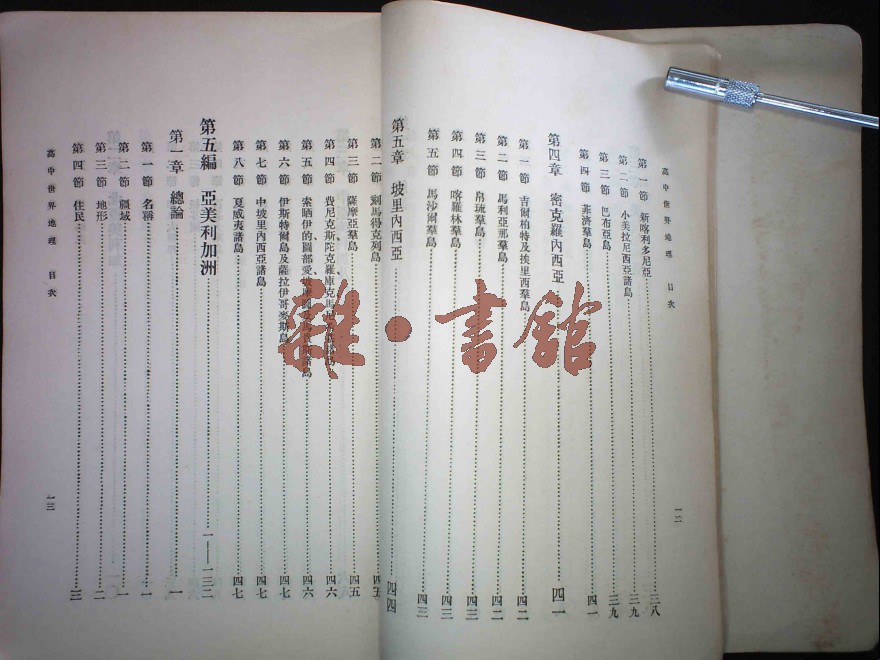 高中世界地理 目次
一二
第一節 新喀利多尼亞 三八
第二節 小美拉尼西亞諸島 三九
第三節 巴布亞島 三九
第四節 菲濟羣島 四一
第四章 密克羅內西亞 四一
第一節 吉爾柏特及埃里西羣島 四二
第二節 馬利亞那羣島 四二
第三節 帛琉羣島 四三
第四節 喀羅林羣島 四三
第五節 馬沙爾羣島 四三
第五章 坡里內西亞 四四
第二節 剌馬得克列島 四五
第三節 薩摩亞羣島 四五
第四節 費尼克斯、陀克羅、庫克 四六
第五節 索哂伊的、圖部愛、 四六
第六節 伊斯特爾島及薩拉伊哥麥斯島 四七
第七節 中坡里內西亞諸島 四七
第八節 夏威夷諸島 四七
第五編 亞美利加洲 一—一三二
第一章 總論 一
第一節 名稱 一
第二節 疆域 一
第三節 地形 二
第四節 住民 三
高中世界地理 目次
一三
雜·書館